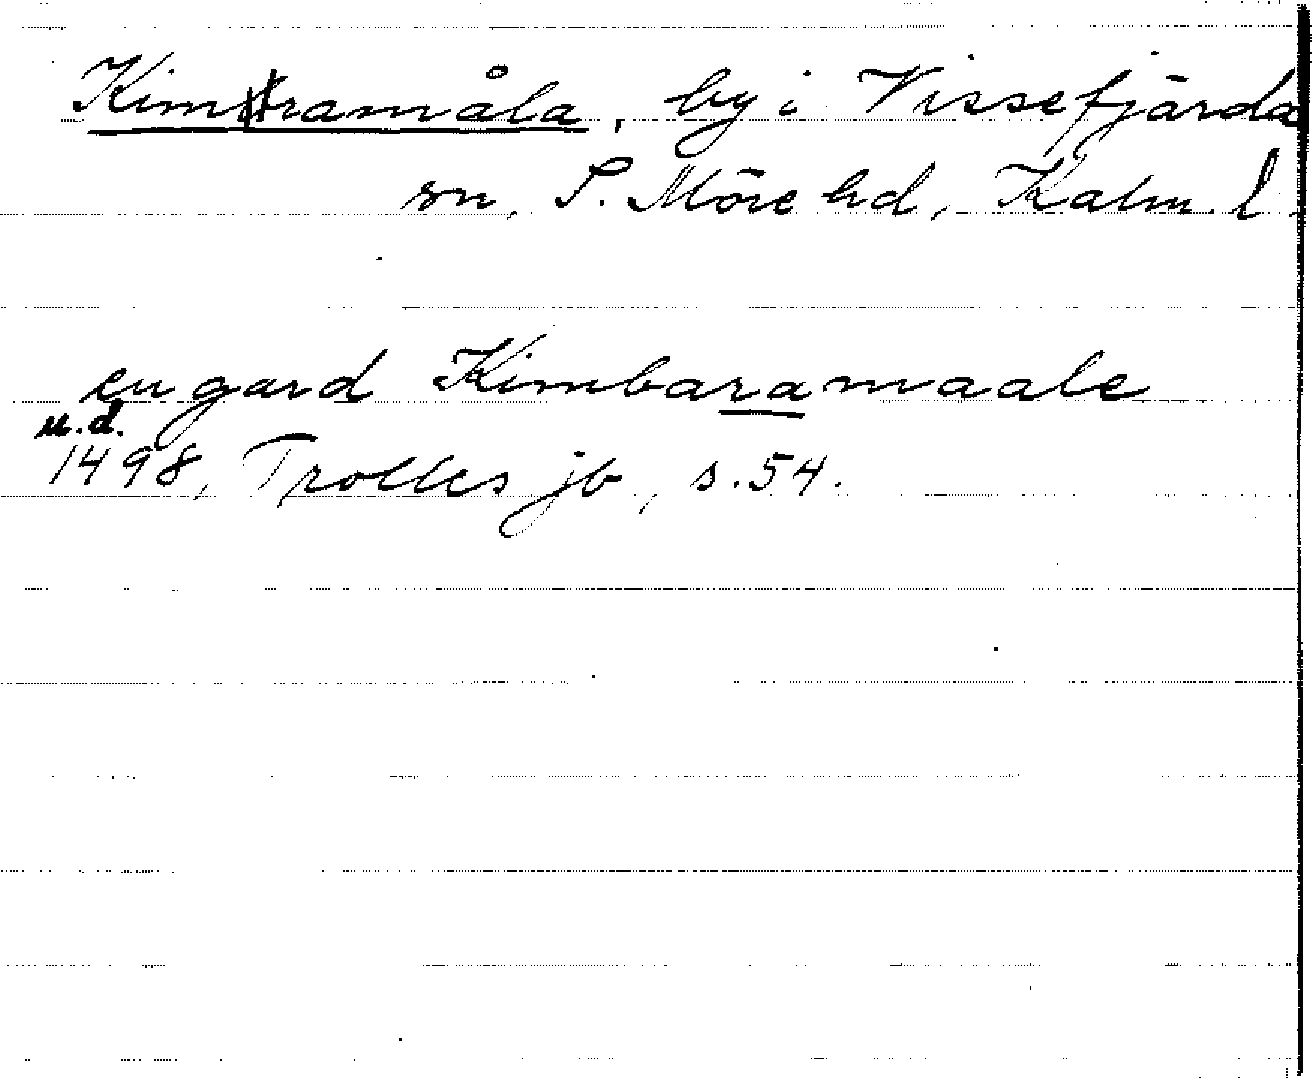 Kimramåla, by i Vissefjärda
sn, S. Möre hd, Kalm. l.
en gard Kimbaramaale
u.d.
1498, Trolles jb, s. 54.